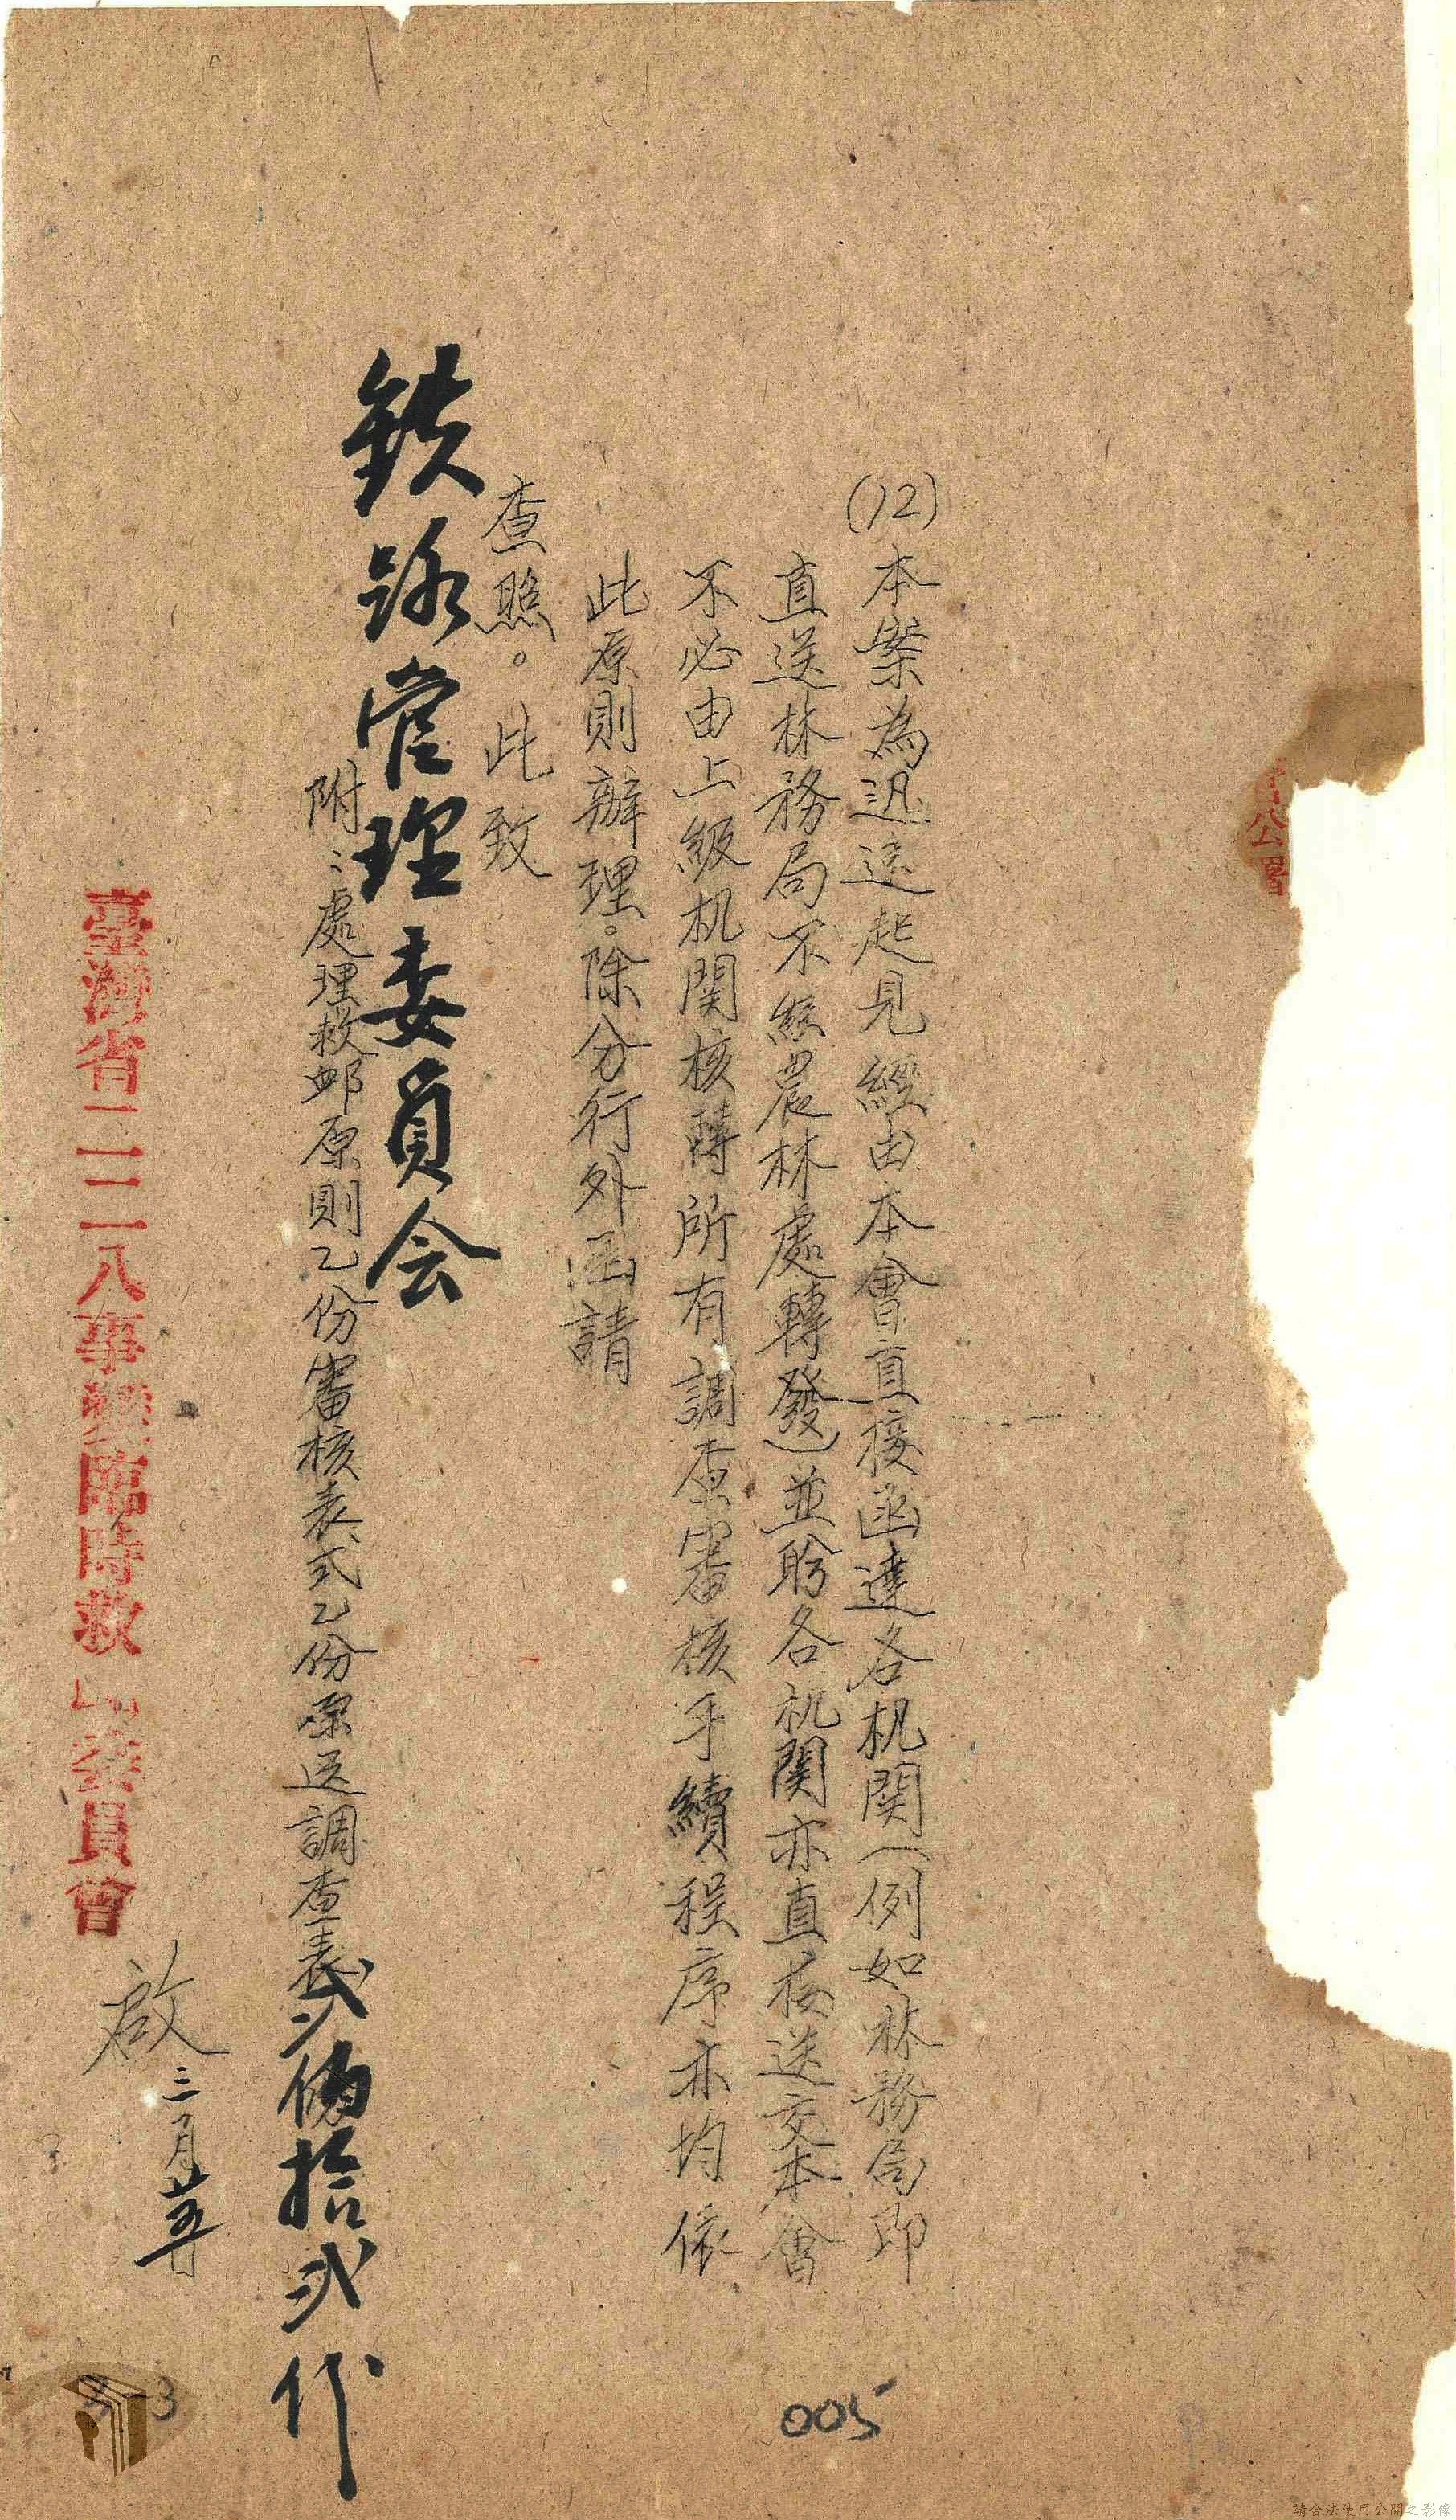 公署
(12)本案為迅速起見經由本會直接函達各机関(例如林務局即
直送林務局不經農林處轉發)並盼各机関亦直接送交本會
不必由上級机関核轉所有調查審核手續程序亦均依
此原則辦理。除分行外函請
查照。此致
鉄路管理委員会
附:處理救卹原則乙份審核表式乙份原送調查表弍佰拾弍件
臺灣省二二八事變臨時救卹委員會
啟 三月廿五日
005
3
請合法使用公開之影像